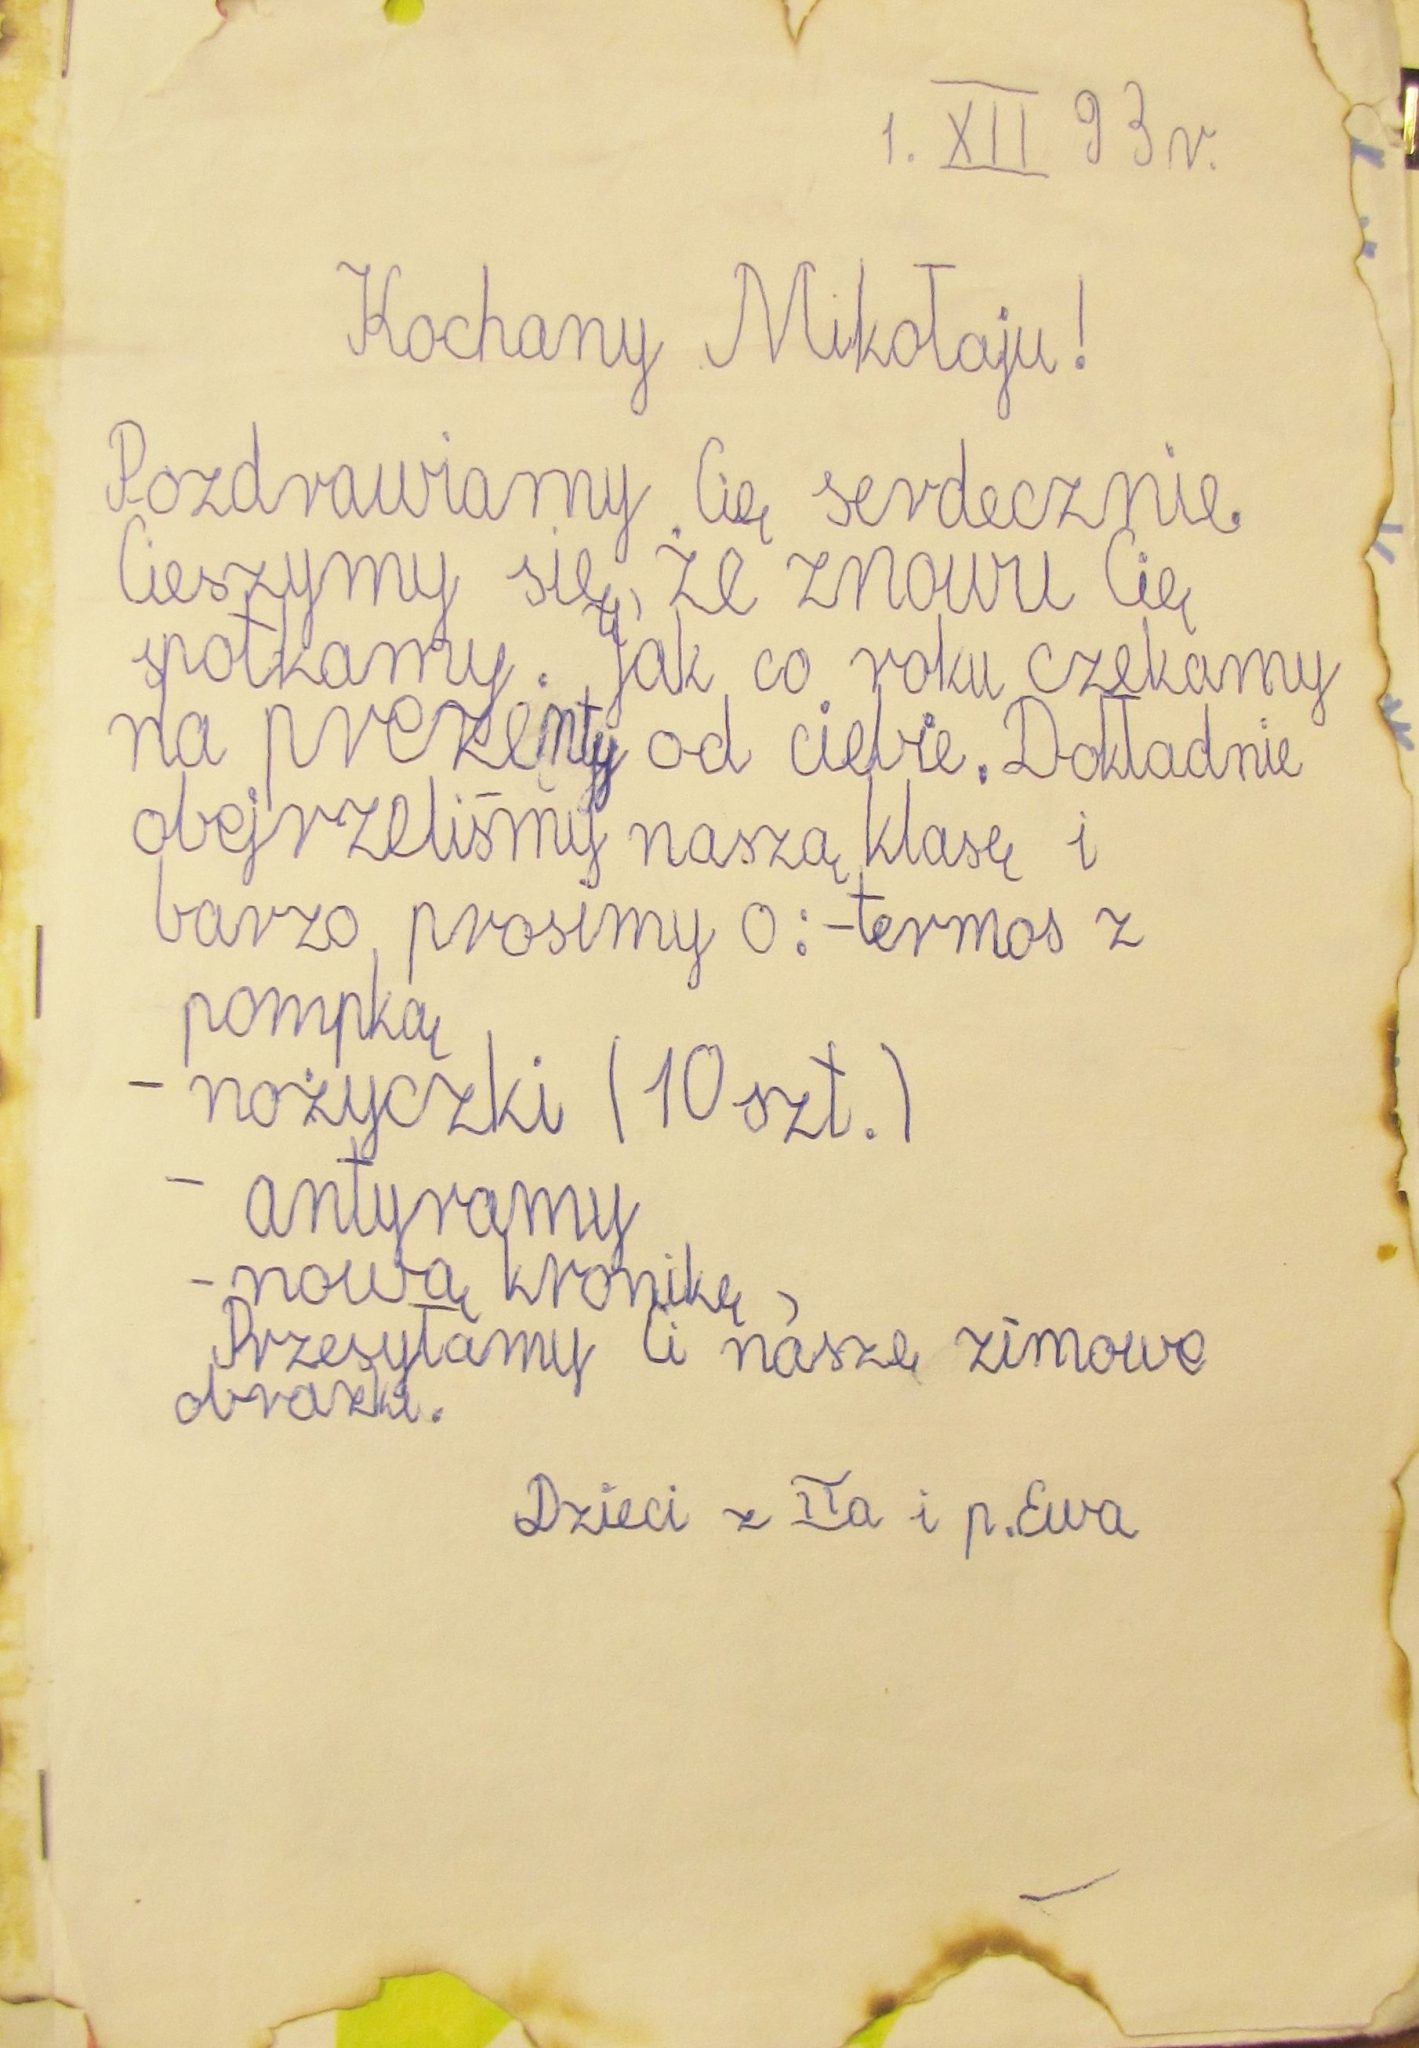 1. XII 93 r.
Kochany Mikołaju!
Pozdrawiamy Cię serdecznie.
Cieszymy się, że znowu Cię
spotkamy. Jak co roku czekamy
na prezenty od ciebie. Dokładnie
obejrzeliśmy naszą klasę i
barzo prosimy o: - termos z
pompką
- nożyczki (10 szt.)
- antyramy
- nową kronikę,
Przesyłamy Ci naszę zimowe
obrazki.
Dzieci z IIa i p. Ewa